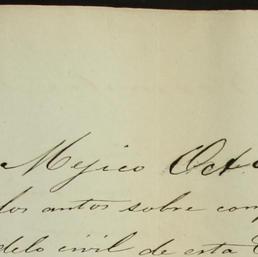 Mejico Oct.
los autos sobre com
delo civil de esta